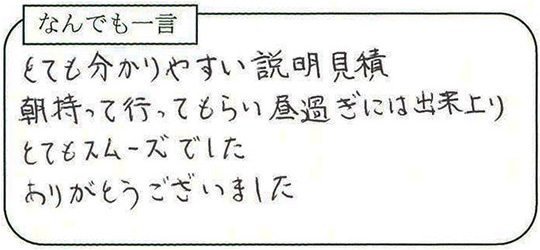 なんでも一言
とても分かりやすい説明見積
朝持って行ってもらい昼過ぎには出来上り
とてもスムーズでした
ありがとうございました